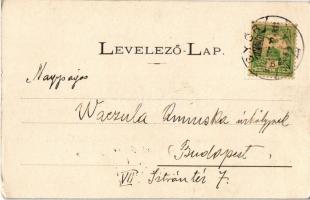 LEVELEZŐ-LAP.
Nagysás
Waczula Aminska úrhölgynek
Budapest
VII. István tér 7.